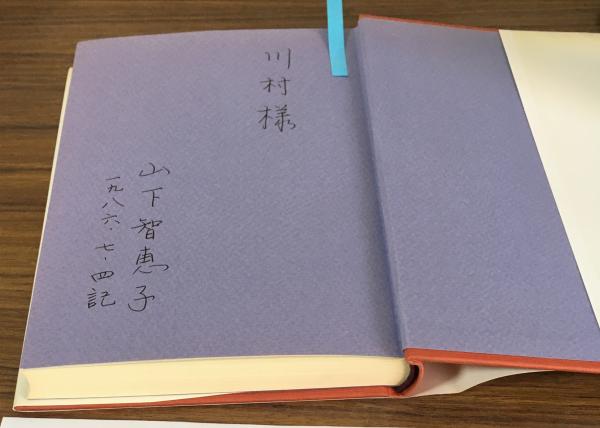 川村様
山下智恵子
一九八六・七・四記